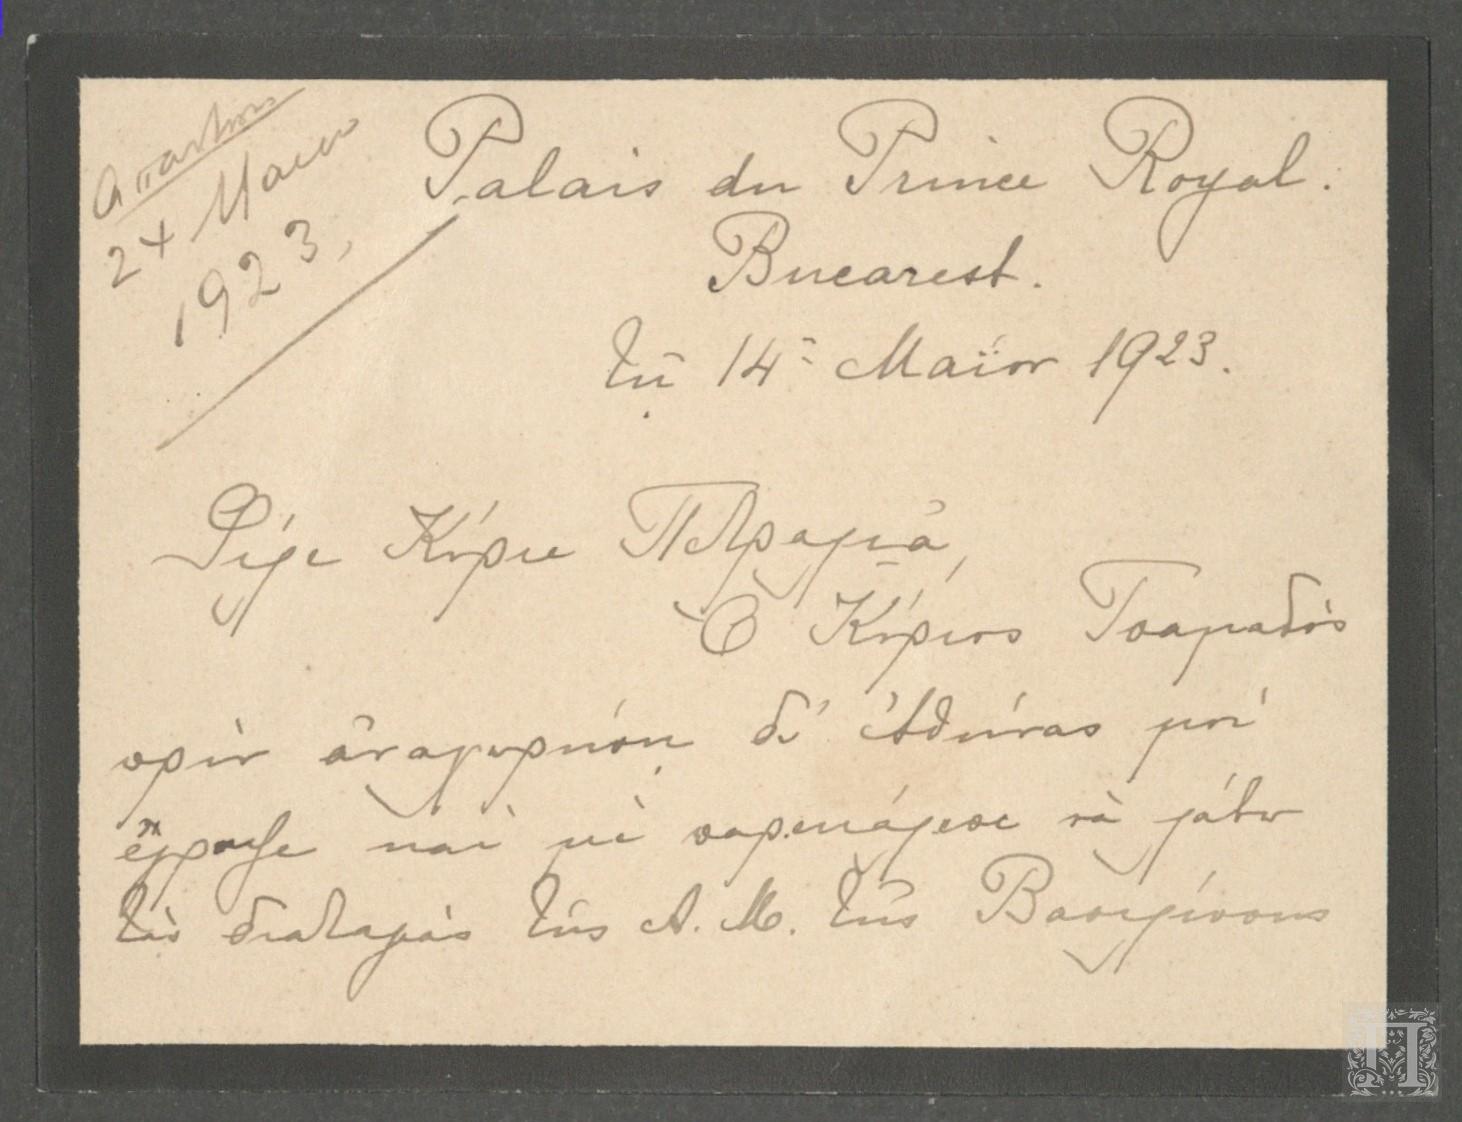 Palais du Prince Royal.
Bucarest.
τῇ 14ῃ Μαΐου 1923.
24 Μαιου
1923,
Φίλε Κύριε
Ὁ Κύριος Τσαμαδὸς
πρὶν ἀναχωρήσῃ δι' Ἀθήνας μοὶ
ἔγραψε καὶ μὲ παρεκάλεσε νὰ λάβω
τὰς διαταγὰς τῆς Α. Μ. τῆς Βασιλίσσης